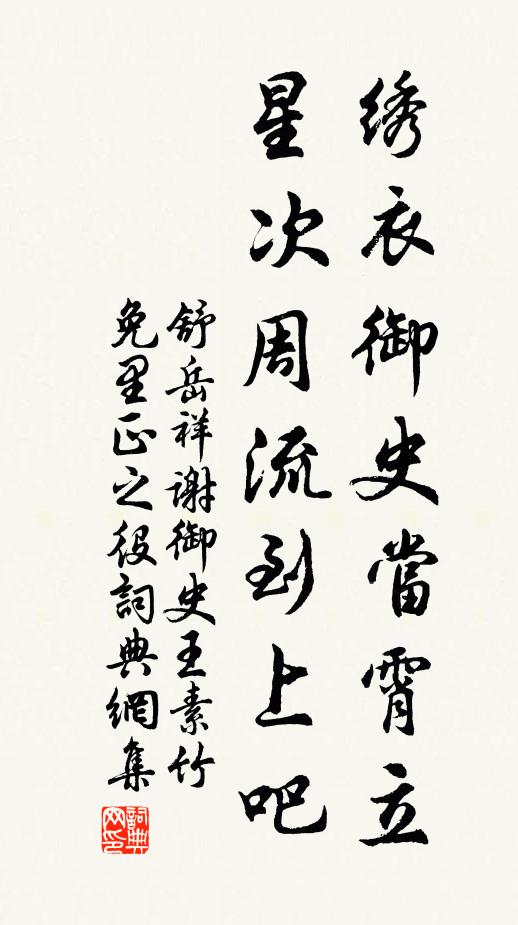 绣衣御史當霄立
星次周流到上吧
舒岳祥謝御史王素竹
免里正之役詞典網集
詞典
网印